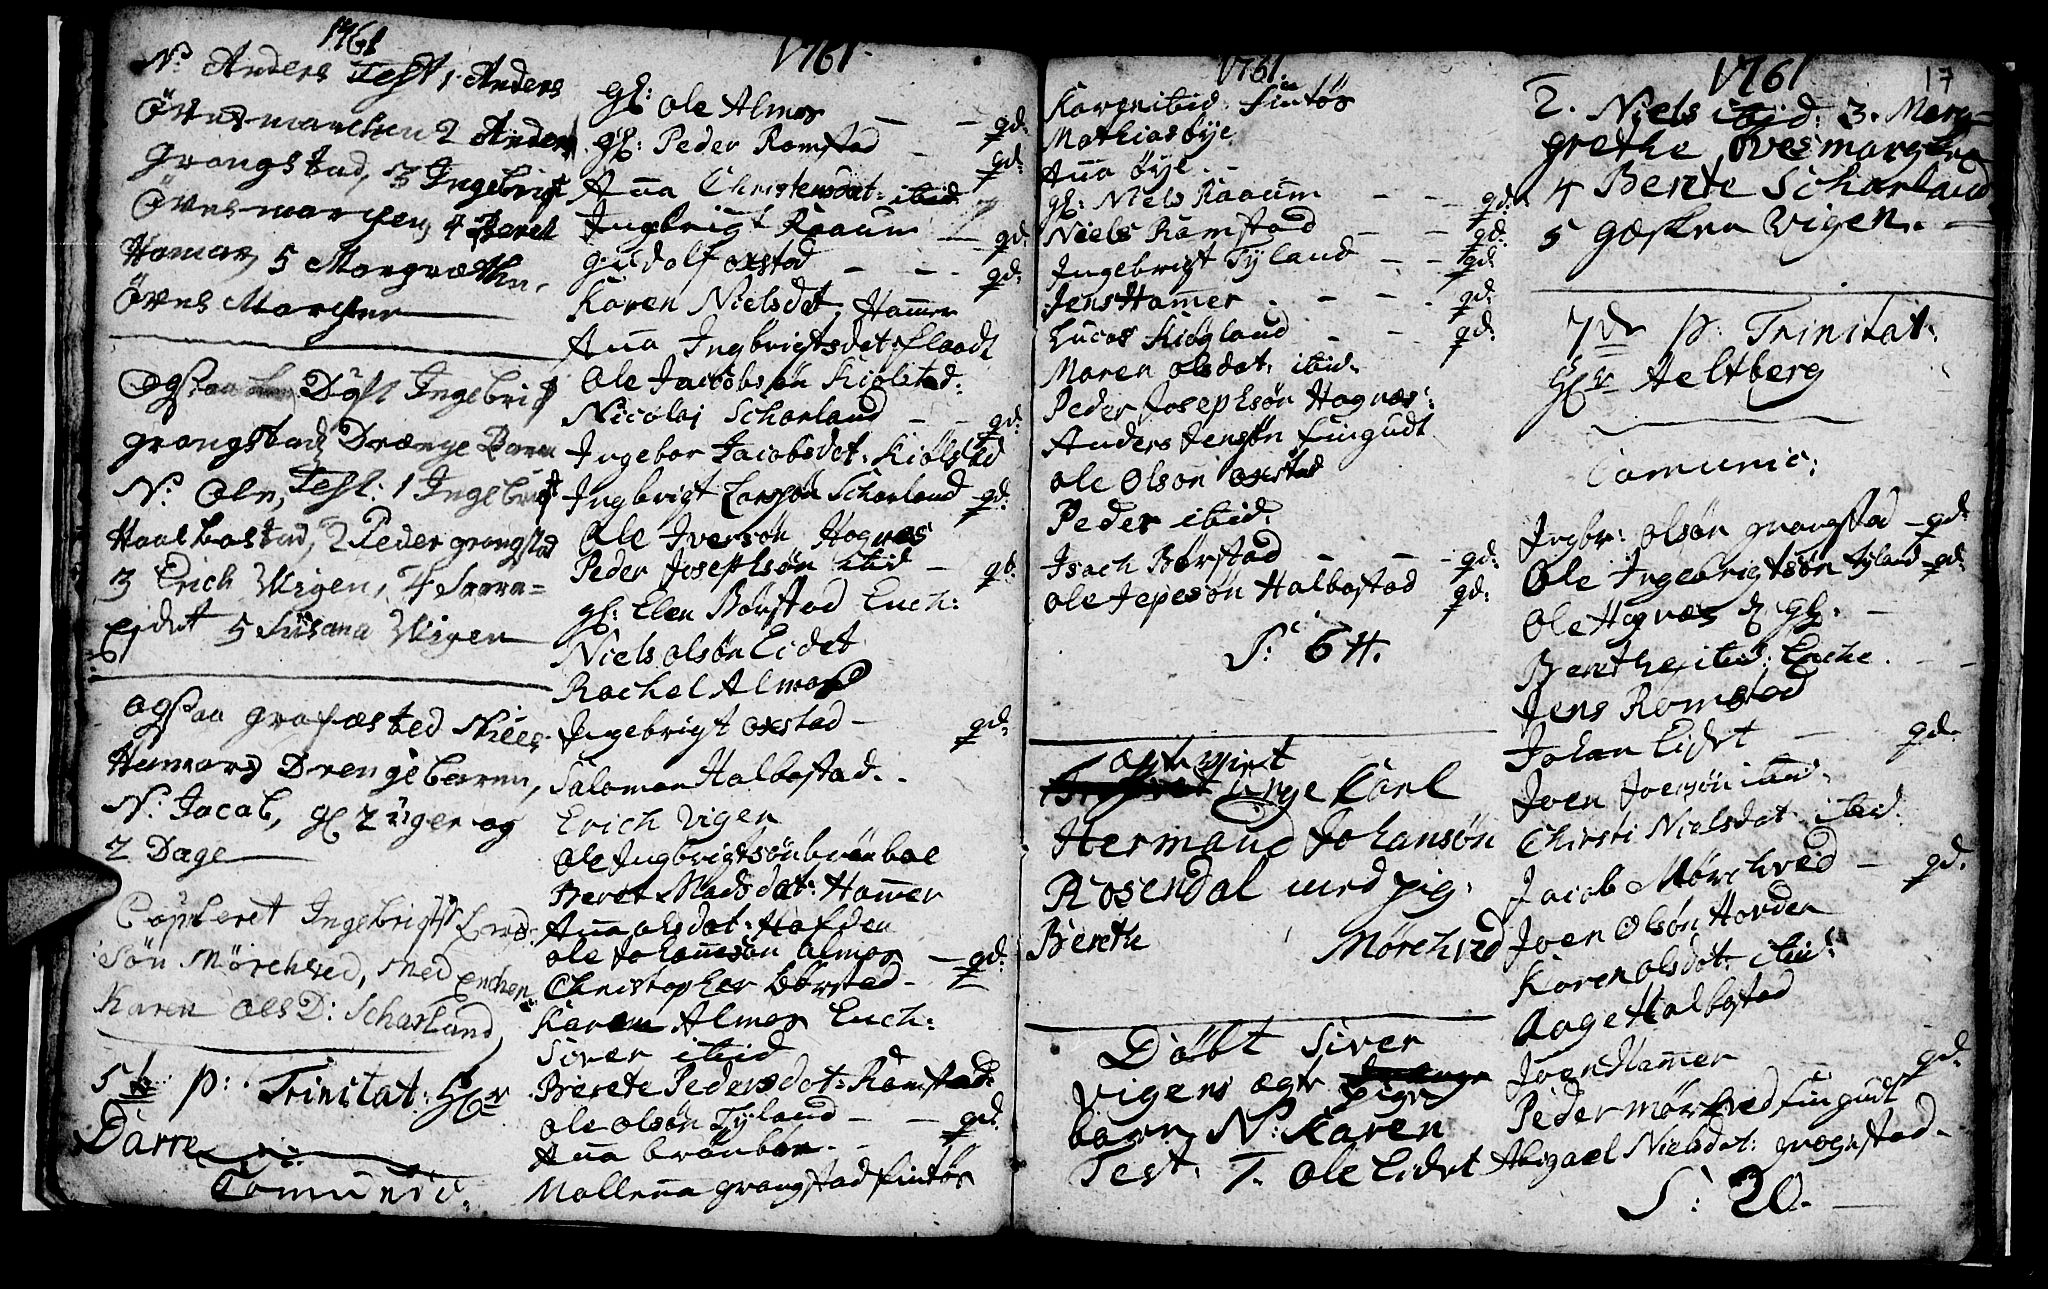 1761
N: Anders Test 1 Anders
Övnesmarchen 2 Anders
grongstad, 3 Ingebrigt
Övnesmarchen, 4 Beret
Hamar, 5 Margrethe
Övnes Marchen
Ogsaa Døbt Ingebrigt
grongstad Drænge Barn
N: Ole, Test: 1 Ingebrigt
Haalbostad, 2 Peder grongstad
3 Erich Wigen, 4 Sara
Eidet 5 Susana Wigen
ogsaa grafæsted Niels
Hamars Drenge baren,
N: Jacob, gl 2 uger og
2 Dage
Copuleret Ingebrigt Lars
Søn Mørchved, med Enchen
Karen Oles D: Scharland
5te p: Trinitat: Hr
Darre
Comunic:
1761
gl: Ole Almos — — qd:
gl: Peder Ramstad — qd:
Anna Christensdat: ibid
Ingebrigt Raaum — qd:
Gudolf oxstad — — qd:
Karen Nielsdat: Hamer
Anna Ingbrigtsdat flaadt
Ole Jacobsøn Kiølstad:
Nicolaj Scharland — — qd:
Ingebor Jacobsdat: Kiølstad
Ingbrigt Larssøn Scharland — qd:
Ole Iversøn Hognæs
Peder Josephsøn ibid — qd:
gl: Elen Børstad Ench:
Niels olsøn Eidet
Rachel Almos
Ingebrigt oxstad — qd:
Salomon Halbostad.
Erich vigen
Ole Ingbrigtsøn brønboe
Beret Madsdat: Hamer
Anna olsdat: Hafden
ole Johanesøn almos — qd:
Christopher Børstad —
Karen Almos Ench:
Siver ibid
Berete Pedersdat: Ramstad
ole olsøn Tyland — — qd:
Anna brønboe
Mallena grongstad fintøs
1761.
Karen ibid: fintøs
Mathias bye
Anna øye
gl: Niels Raaum — — qd:
Niels Ramstad — — qd:
Ingebrigt Tyland — — qd:
Jens Hamer — — qd:
Lucas Kiøgland — — qd:
Maren olsdat: ibid.
Peder Josephsøn Hognæs:
Anders Jensøn fingudt
ole Olsøn oxstad
Peder ibid:
Isach Børstad — — qd:
ole Jepesøn Halbostad qd:
S: 64.
unge Karl
Hermand Johansøn
Rosendal med pig:
Bereth Mørchved
Døbt Siver
Vigens ægte pige
barn N: Karen
Test: 1. ole Eidet
1761
17
2. Niels ibid: 3. Marg=
grethe Øvesmargen
4 Berete Scharland
5 Gæsken Vigen.
7de p: Trinitat:
Hr Aeltberg
Comunic:
Ingbr: olsøn grongstad — qd:
Ole Ingebrigtsøn tyland — qd:
Ole Hognæs gl:
Berethe ibid: Enche
Jens Ramstad
Johan Eidet — qd:
Joen Joensøn ibid:
Chirsti Nielsdat: ibid.
Jacob Mørchved — qd:
Joen Olsøn Hafden
Karen olsdat: ibid:
Aage Halbostad
Joen Hamer — qd:
Peder mørchved fingudt
Abigael Nielsdat: grognstad
S: 20.